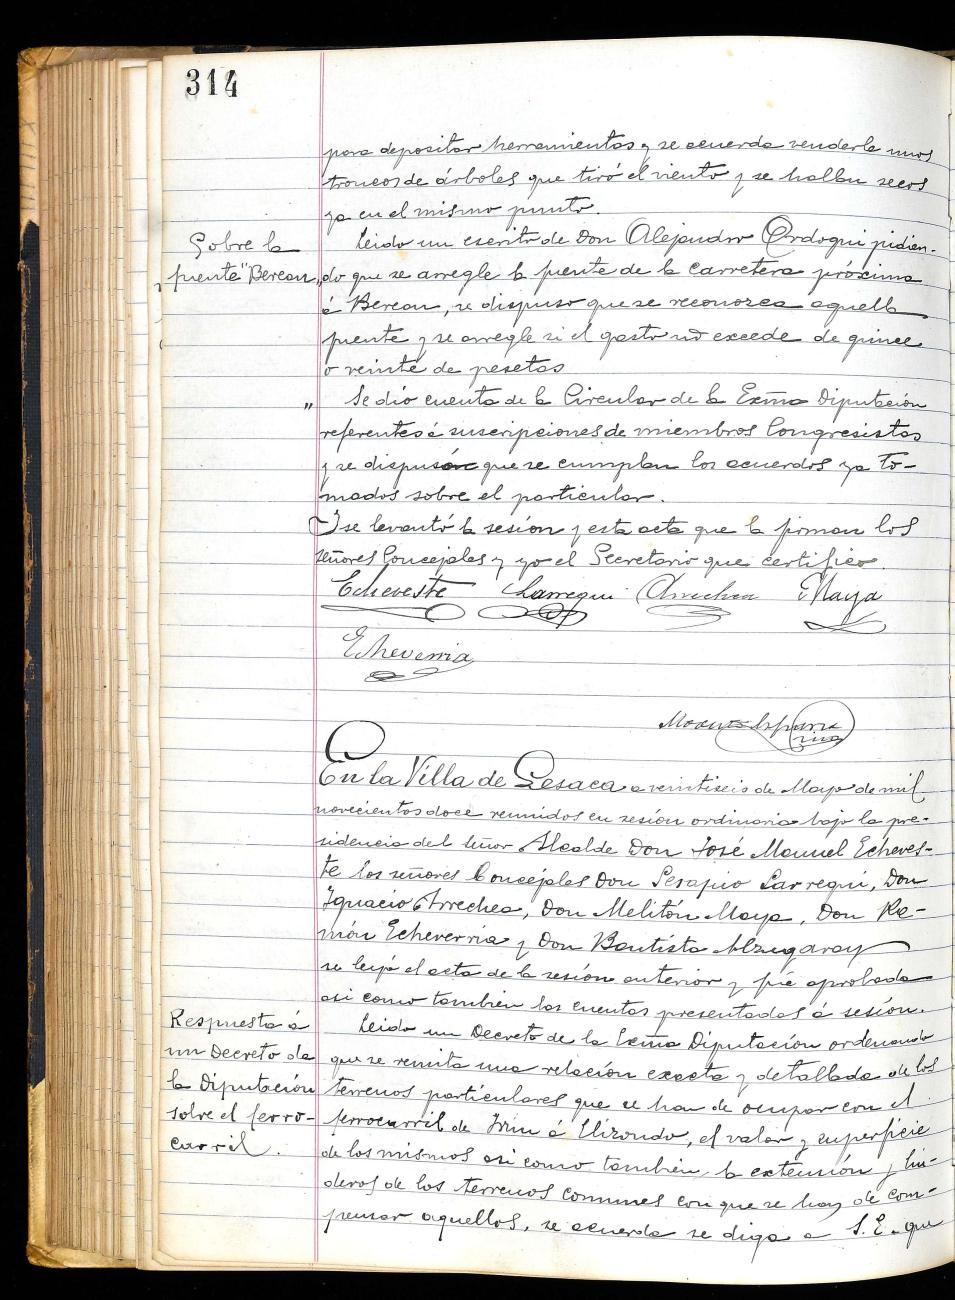 314
para depositar herramientas y se acuerda venderle unos
troncos de árboles que tiró el viento y se hallan secos
ya en el mismo punto.
Sobre la
puente "Berean"
Leido un escrito de Don Alejandro Ordoqui pidien-
do que se arregle la puente de la carretera próxima
á Berean, se dispuso que se reconozca aquella
puente y se arregle si el gasto no excede de quince
o veinte de pesetas
" Se dió cuenta de la Circular de la Exma Diputación
referentes á suscripciones de miembros Congresistas
y se dispuso que se cumplan los acuerdos ya to-
mados sobre el particular.
Y se levantó la sesión y esta acta que la firman los
señores Concejales y yo el Secretario que certifico.
Echeveste Larregui Arrechea Maya
Echeverria
En la Villa de Lesaca a veintiseis de Mayo de mil
novecientos doce reunidos en sesión ordinaria bajo la pre-
sidencia del señor Alcalde Don José Manuel Echeves-
te los señores Concejales Don Serapio Larregui, Don
Ignacio Arrechea, Don Melitón Maya, Don Ra-
món Echeverria y Don Bautista Alzugaray
se leyó el acta de la sesión anterior y fué aprobada
asi como tambien las cuentas presentadas á sesión.
Respuesta á
un Decreto de
la Diputación
sobre el ferro-
carril.
Leido un Decreto de la Exma Diputación ordenando
que se remita una relación exacta y detallada de los
terrenos particulares que se han de ocupar con el
ferrocarril de Irún á Elizondo, el valor y superficie
de los mismos asi como tambien la extensión y lin-
deros de los terrenos comunes con que se han de com-
pensar aquellos, se acuerda se diga a S.E. que